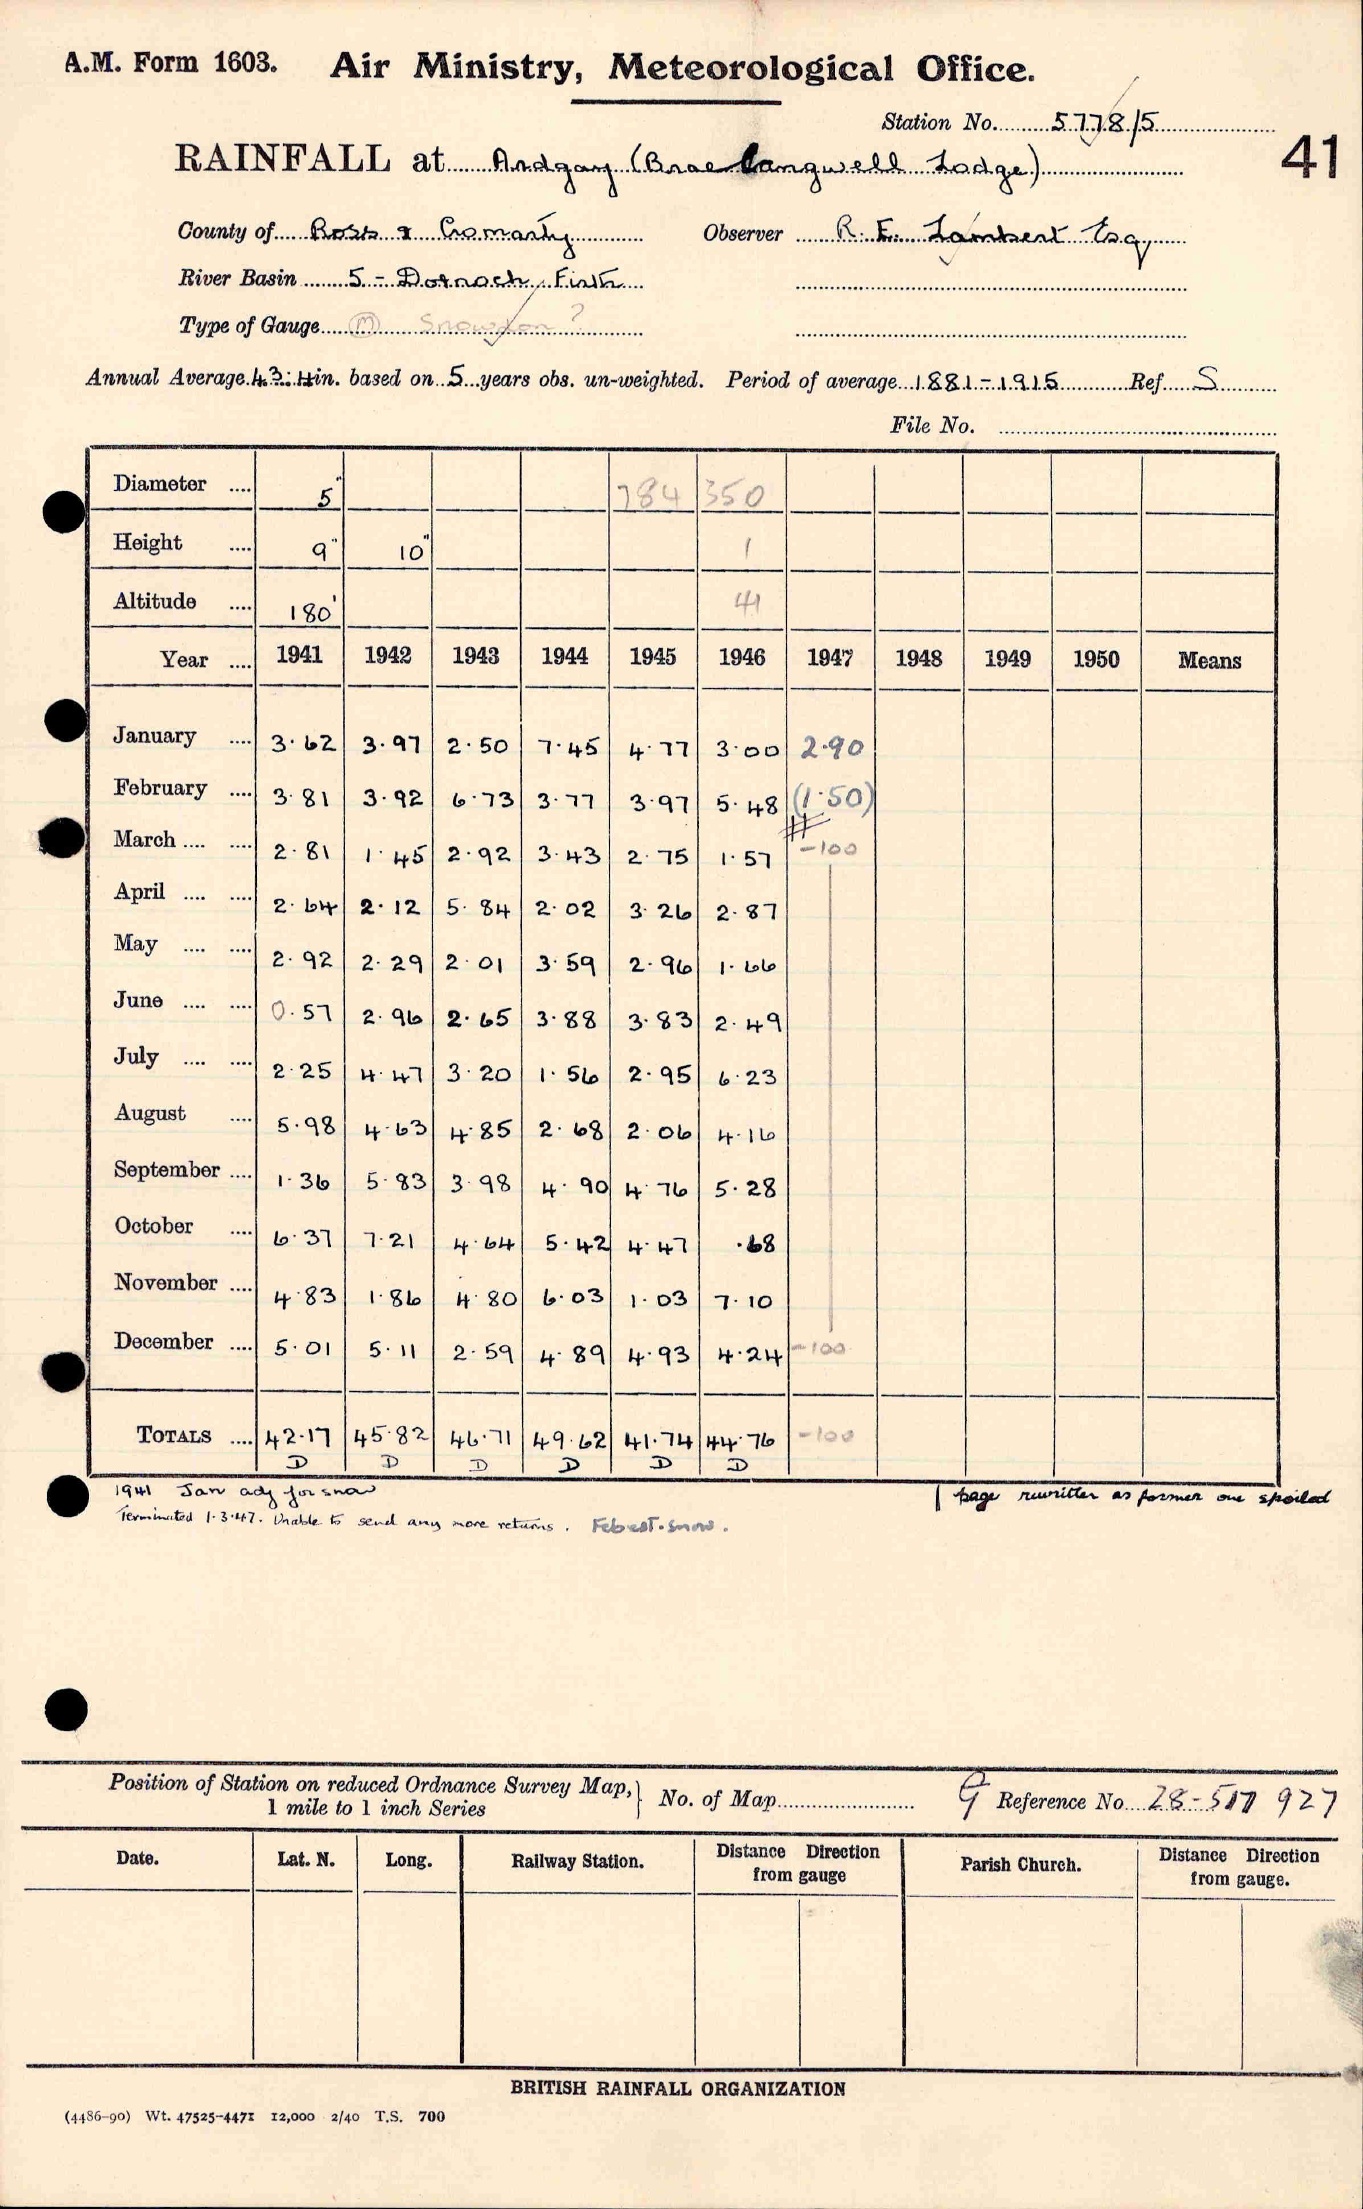 A.M. Form 1603. Air Ministry, Meteorological Office.
Station No. 5778/5
41
RAINFALL at Ardgay (Brae Langwell Lodge)
County of Ross & Cromarty Observer R. E. Lambert Esq
River Basin 5 - Dornoch Firth
Type of Gauge M Snowdon ?
Annual Average 43.4 in. based on 5 years obs. un-weighted. Period of average 1881-1915 Ref. S
File No.
Diameter 5" 784 350
Height 9" 10" 1
Altitude 180' 41
Year 1941 1942 1943 1944 1945 1946 1947 1948 1949 1950 Means
January 3.62 3.97 2.50 7.45 4.77 3.00 2.90
February 3.81 3.92 6.73 3.77 3.97 5.48 (1.50)
March 2.81 1.45 2.92 3.43 2.75 1.57 -100
April 2.64 2.12 5.84 2.02 3.26 2.87
May 2.92 2.29 2.01 3.59 2.96 1.66
June 0.57 2.96 2.65 3.88 3.83 2.49
July 2.25 4.47 3.20 1.56 2.95 6.23
August 5.98 4.63 4.85 2.68 2.06 4.16
September 1.36 5.83 3.98 4.90 4.76 5.28
October 6.37 7.21 4.64 5.42 4.47 .68
November 4.83 1.86 4.80 6.03 1.03 7.10
December 5.01 5.11 2.59 4.89 4.93 4.24 -100
TOTALS 42.17 45.82 46.71 49.62 41.74 44.76 -100
D D D D D D
1941 Jan adj for snow
page rewritten as former one spoiled
Terminated 1.3.47. Unable to send any more returns. Feb est. snow.
Position of Station on reduced Ordnance Survey Map,
1 mile to 1 inch Series
No. of Map
G Reference No. 28-517 927
Date. Lat. N. Long. Railway Station. Distance from gauge Direction Parish Church. Distance Direction from gauge.
BRITISH RAINFALL ORGANIZATION
(4486-90) Wt. 47525-4471 12,000 2/40 T.S. 700